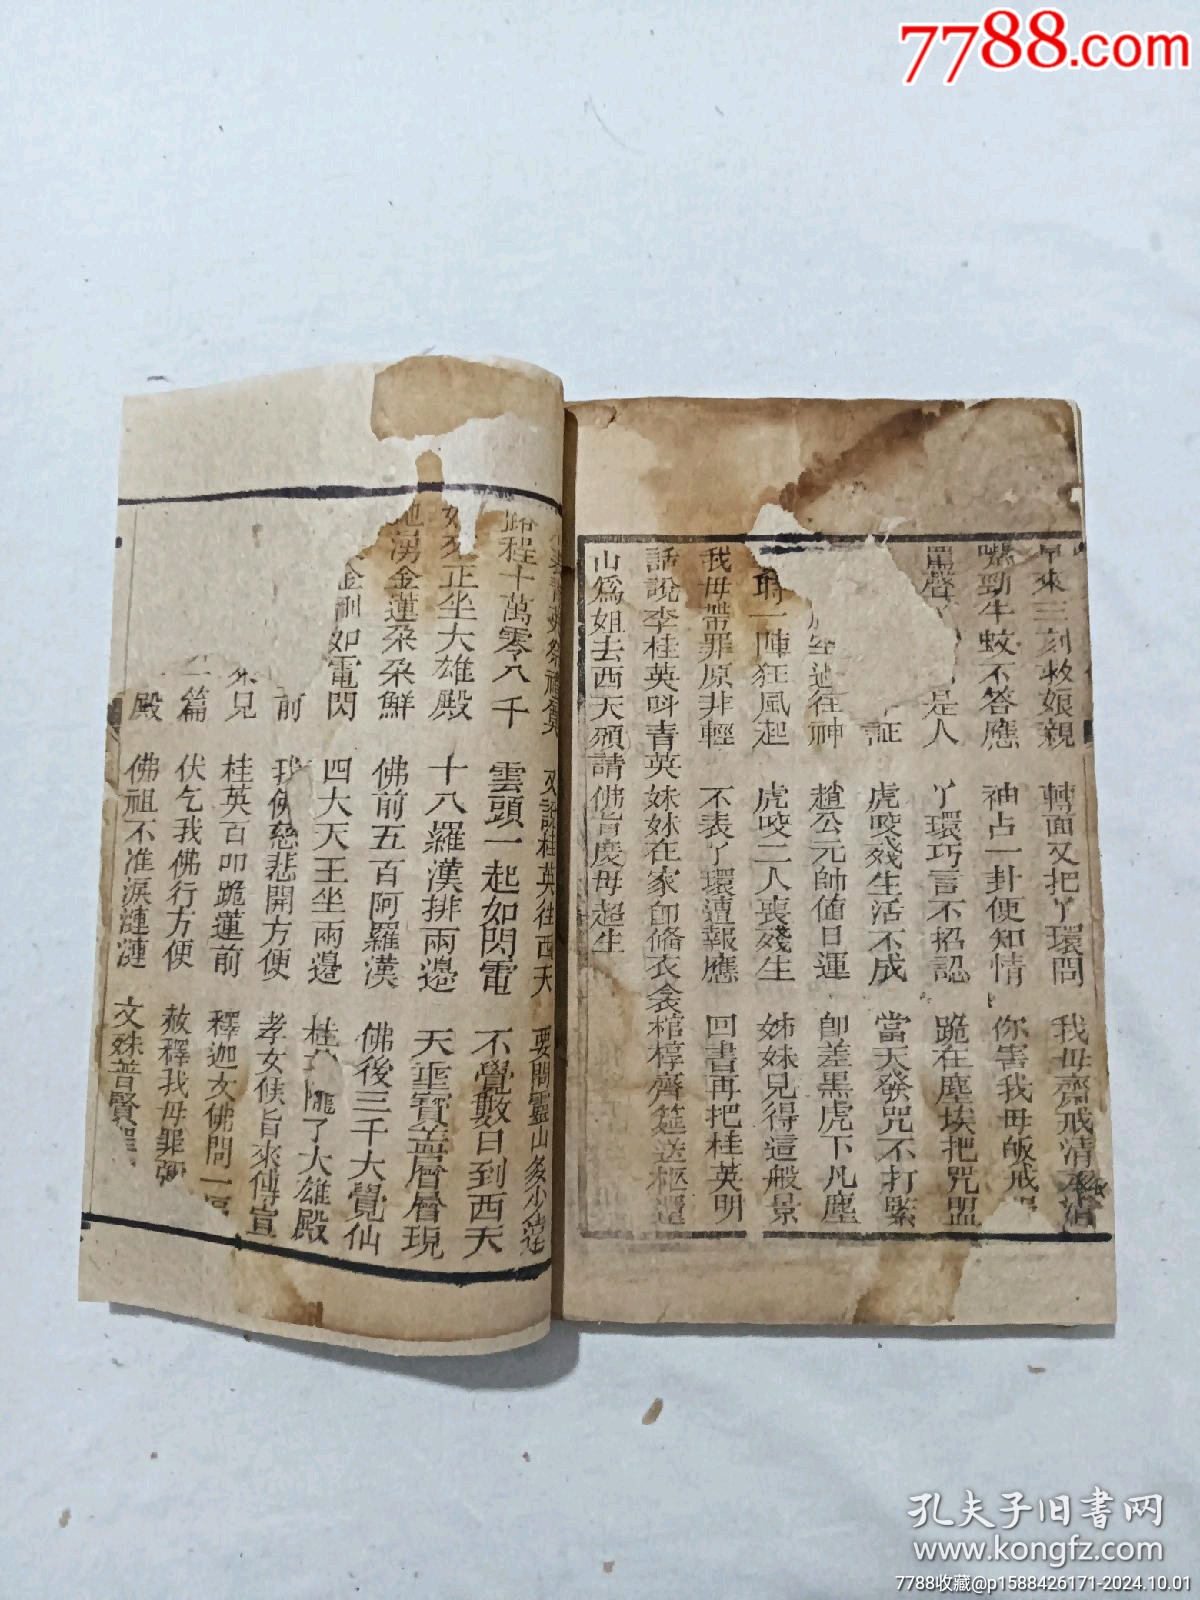 7788.com
早來三刻救娘親 轉面又把丫環問 我母齋戒清
勁牛蚊不答應 袖占一卦便知情 你害我母皈戒
罵聲 是人 丫環巧言不招認 跪在塵埃把咒盟
証 虎咬殘生活不成 當天發咒不打緊
空過往神 趙公元帥值日運 即差黑虎下凡塵
一陣狂風起 虎咬二人喪殘生 姊妹見得這般景
我母帶罪原非輕 不表丫環遭報應 回書再把桂英明
話說李桂英呌青英妹妹在家卽俻衣衾棺椁齊筵送柩還
山爲姐去西天須請佛旨度母超生
又說桂英往西天 要問靈山多少遠
路程十萬零八千 雲頭一起如閃電 不覺數日到西天
正坐大雄殿 十八羅漢排兩邊 天垂寶蓋層層現
地湧金蓮朶朶鮮 佛前五百阿羅漢 佛後三千大覺仙
金 如電閃 四大天王坐兩邊 桂 了大雄殿
前 我佛慈悲開方便 孝女候旨來傳宣
見 桂英百叩跪蓮前 釋迦文佛問一
篇 伏乞我佛行方便 赦釋我母罪
殿 佛祖不准淚漣漣 文殊普賢
孔夫子旧书网
www.kongfz.com
7788收藏@p1588426171-2024.10.01